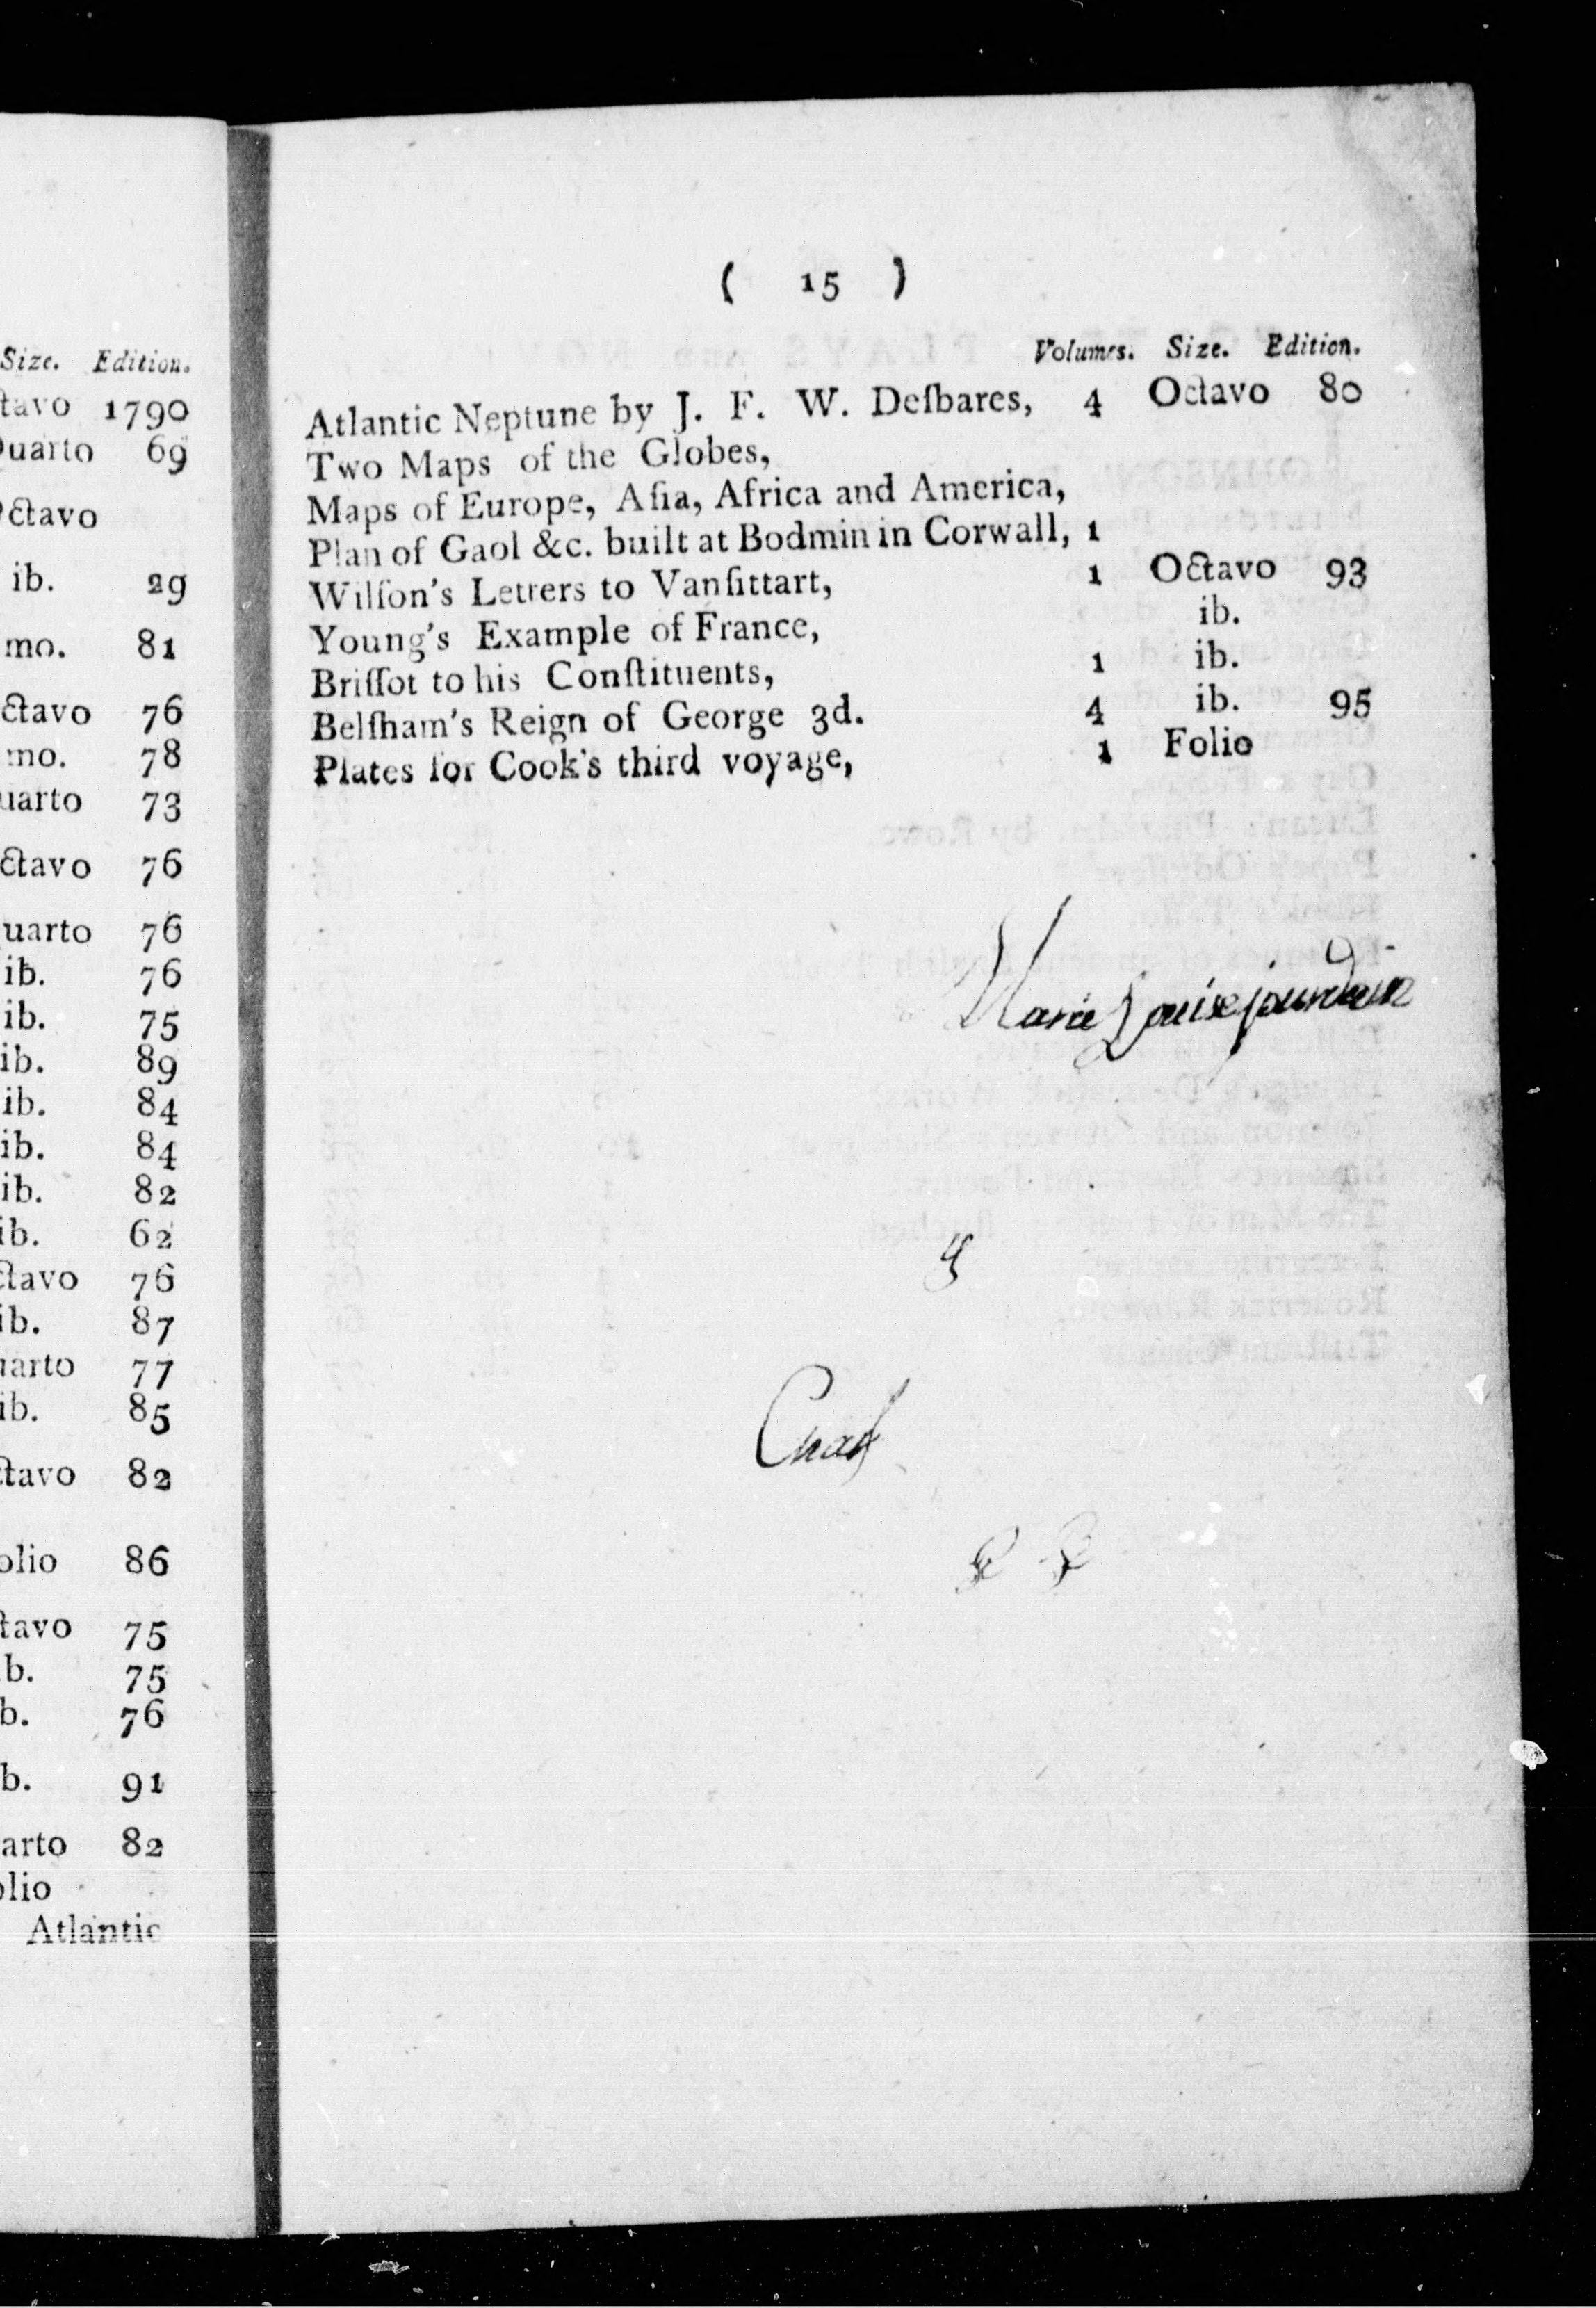 Size. Edition.
tavo 1790
uarto 69
ctavo
ib. 29
mo. 81
ctavo 76
mo. 78
uarto 73
ctavo 76
uarto 76
ib. 76
ib. 75
ib. 89
ib. 84
ib. 84
ib. 82
ib. 62
ctavo 76
ib. 87
uarto 77
ib. 85
ctavo 82
olio 86
tavo 75
b. 75
b. 76
b. 91
arto 82
olio
Atlantic
( 15 )
Volumes. Size. Edition.
Atlantic Neptune by J. F. W. Deſbares, 4 Octavo 80
Two Maps of the Globes,
Maps of Europe, Aſia, Africa and America,
Plan of Gaol &c. built at Bodmin in Corwall, 1
Wilſon's Letrers to Vanſittart, 1 Octavo 93
Young's Example of France, ib.
Briſſot to his Conſtituents, 1 ib.
Belſham's Reign of George 3d. 4 ib. 95
Plates for Cook's third voyage, 1 Folio
Marie Louise jourdain